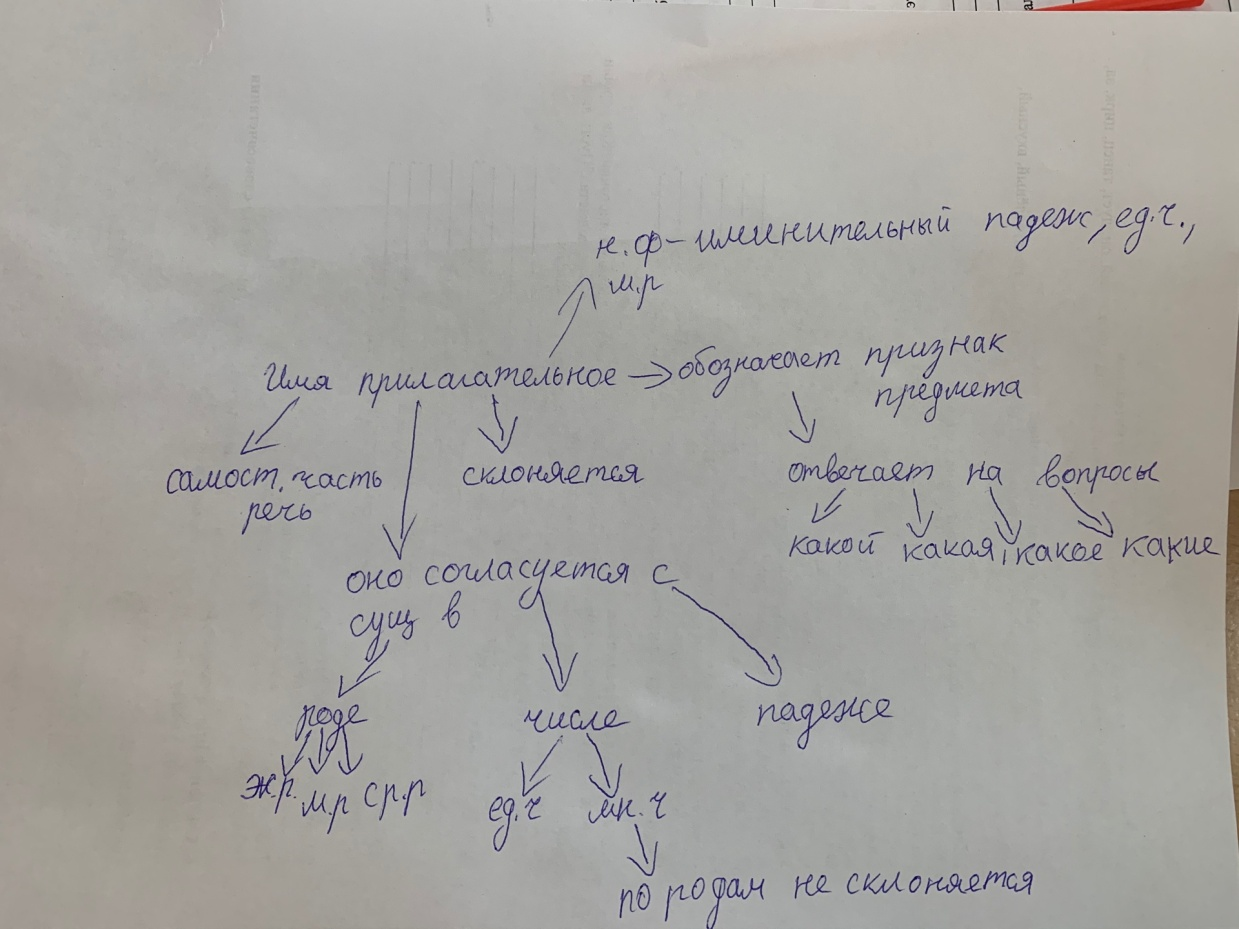 н.ф-иминительный падеж, ед.ч.,
м.р
Имя прилагательное обозначает признак
предмета
самост. часть
речь
склоняется
отвечает на вопросы
какой какая, какое какие
оно согласуется с
сущ в
роде числе падеже
ж.р. м.р ср.р
ед.ч мн.ч
по родам не склоняется